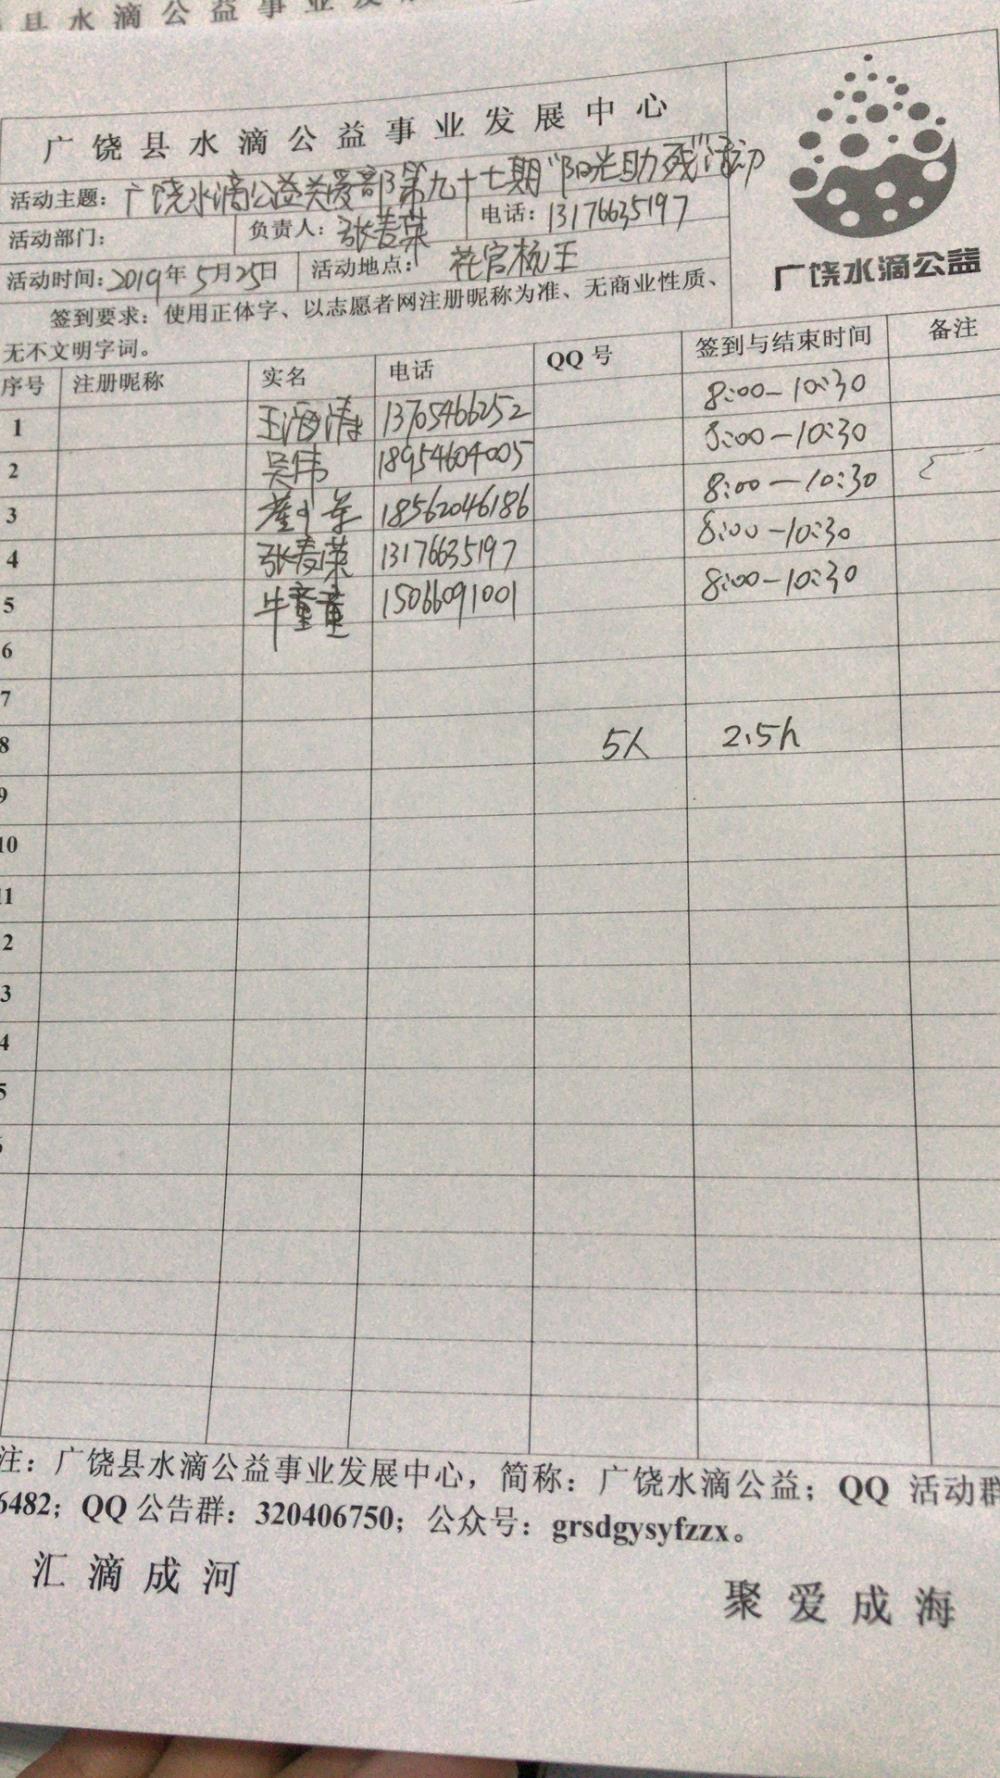 县水滴公益事业发
广饶县水滴公益事业发展中心
活动主题：广饶水滴公益关爱部第九十七期“阳光助残”活动
活动部门： 负责人：张春荣 电话：13176635197
活动时间：2019年5月25日 活动地点：花官杨王
签到要求：使用正体字、以志愿者网注册昵称为准、无商业性质、
无不文明字词。
广饶水滴公益
序号 注册昵称 实名 电话 QQ号 签到与结束时间 备注
1 王海涛 13705466252 8:00-10:30
2 吴伟 18954604005 8:00-10:30
3 18562046186 8:00-10:30
4 张春荣 13176635197 8:00-10:30
5 牛童童 15066091001 8:00-10:30
6
7
8 5人 2.5h
9
10
11
2
3
4
5
注：广饶县水滴公益事业发展中心，简称：广饶水滴公益；QQ 活动群
6482；QQ公告群：320406750；公众号：grsdgysyfzzx。
汇滴成河 聚爱成海